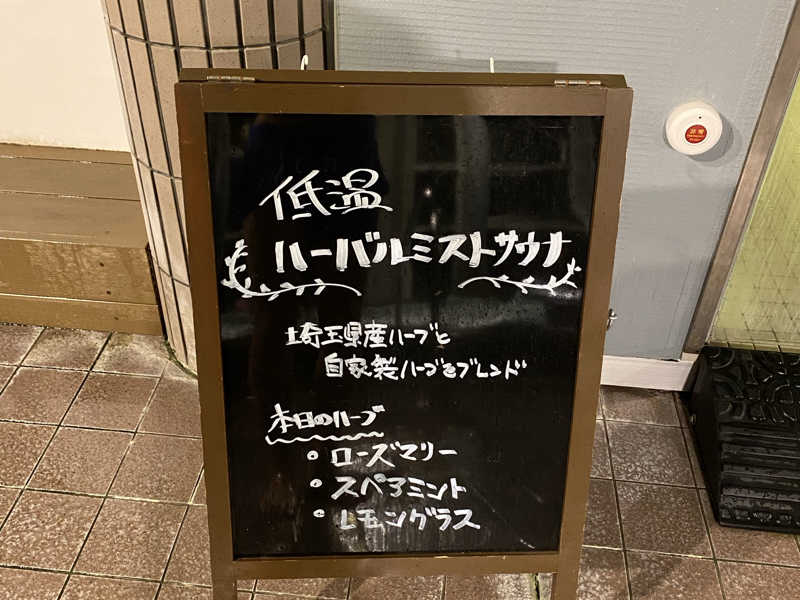 低温
ハーバルミストサウナ
埼玉県産ハーブと
自家製ハーブをブレンド
本日のハーブ
• ローズマリー
• スペアミント
• レモングラス